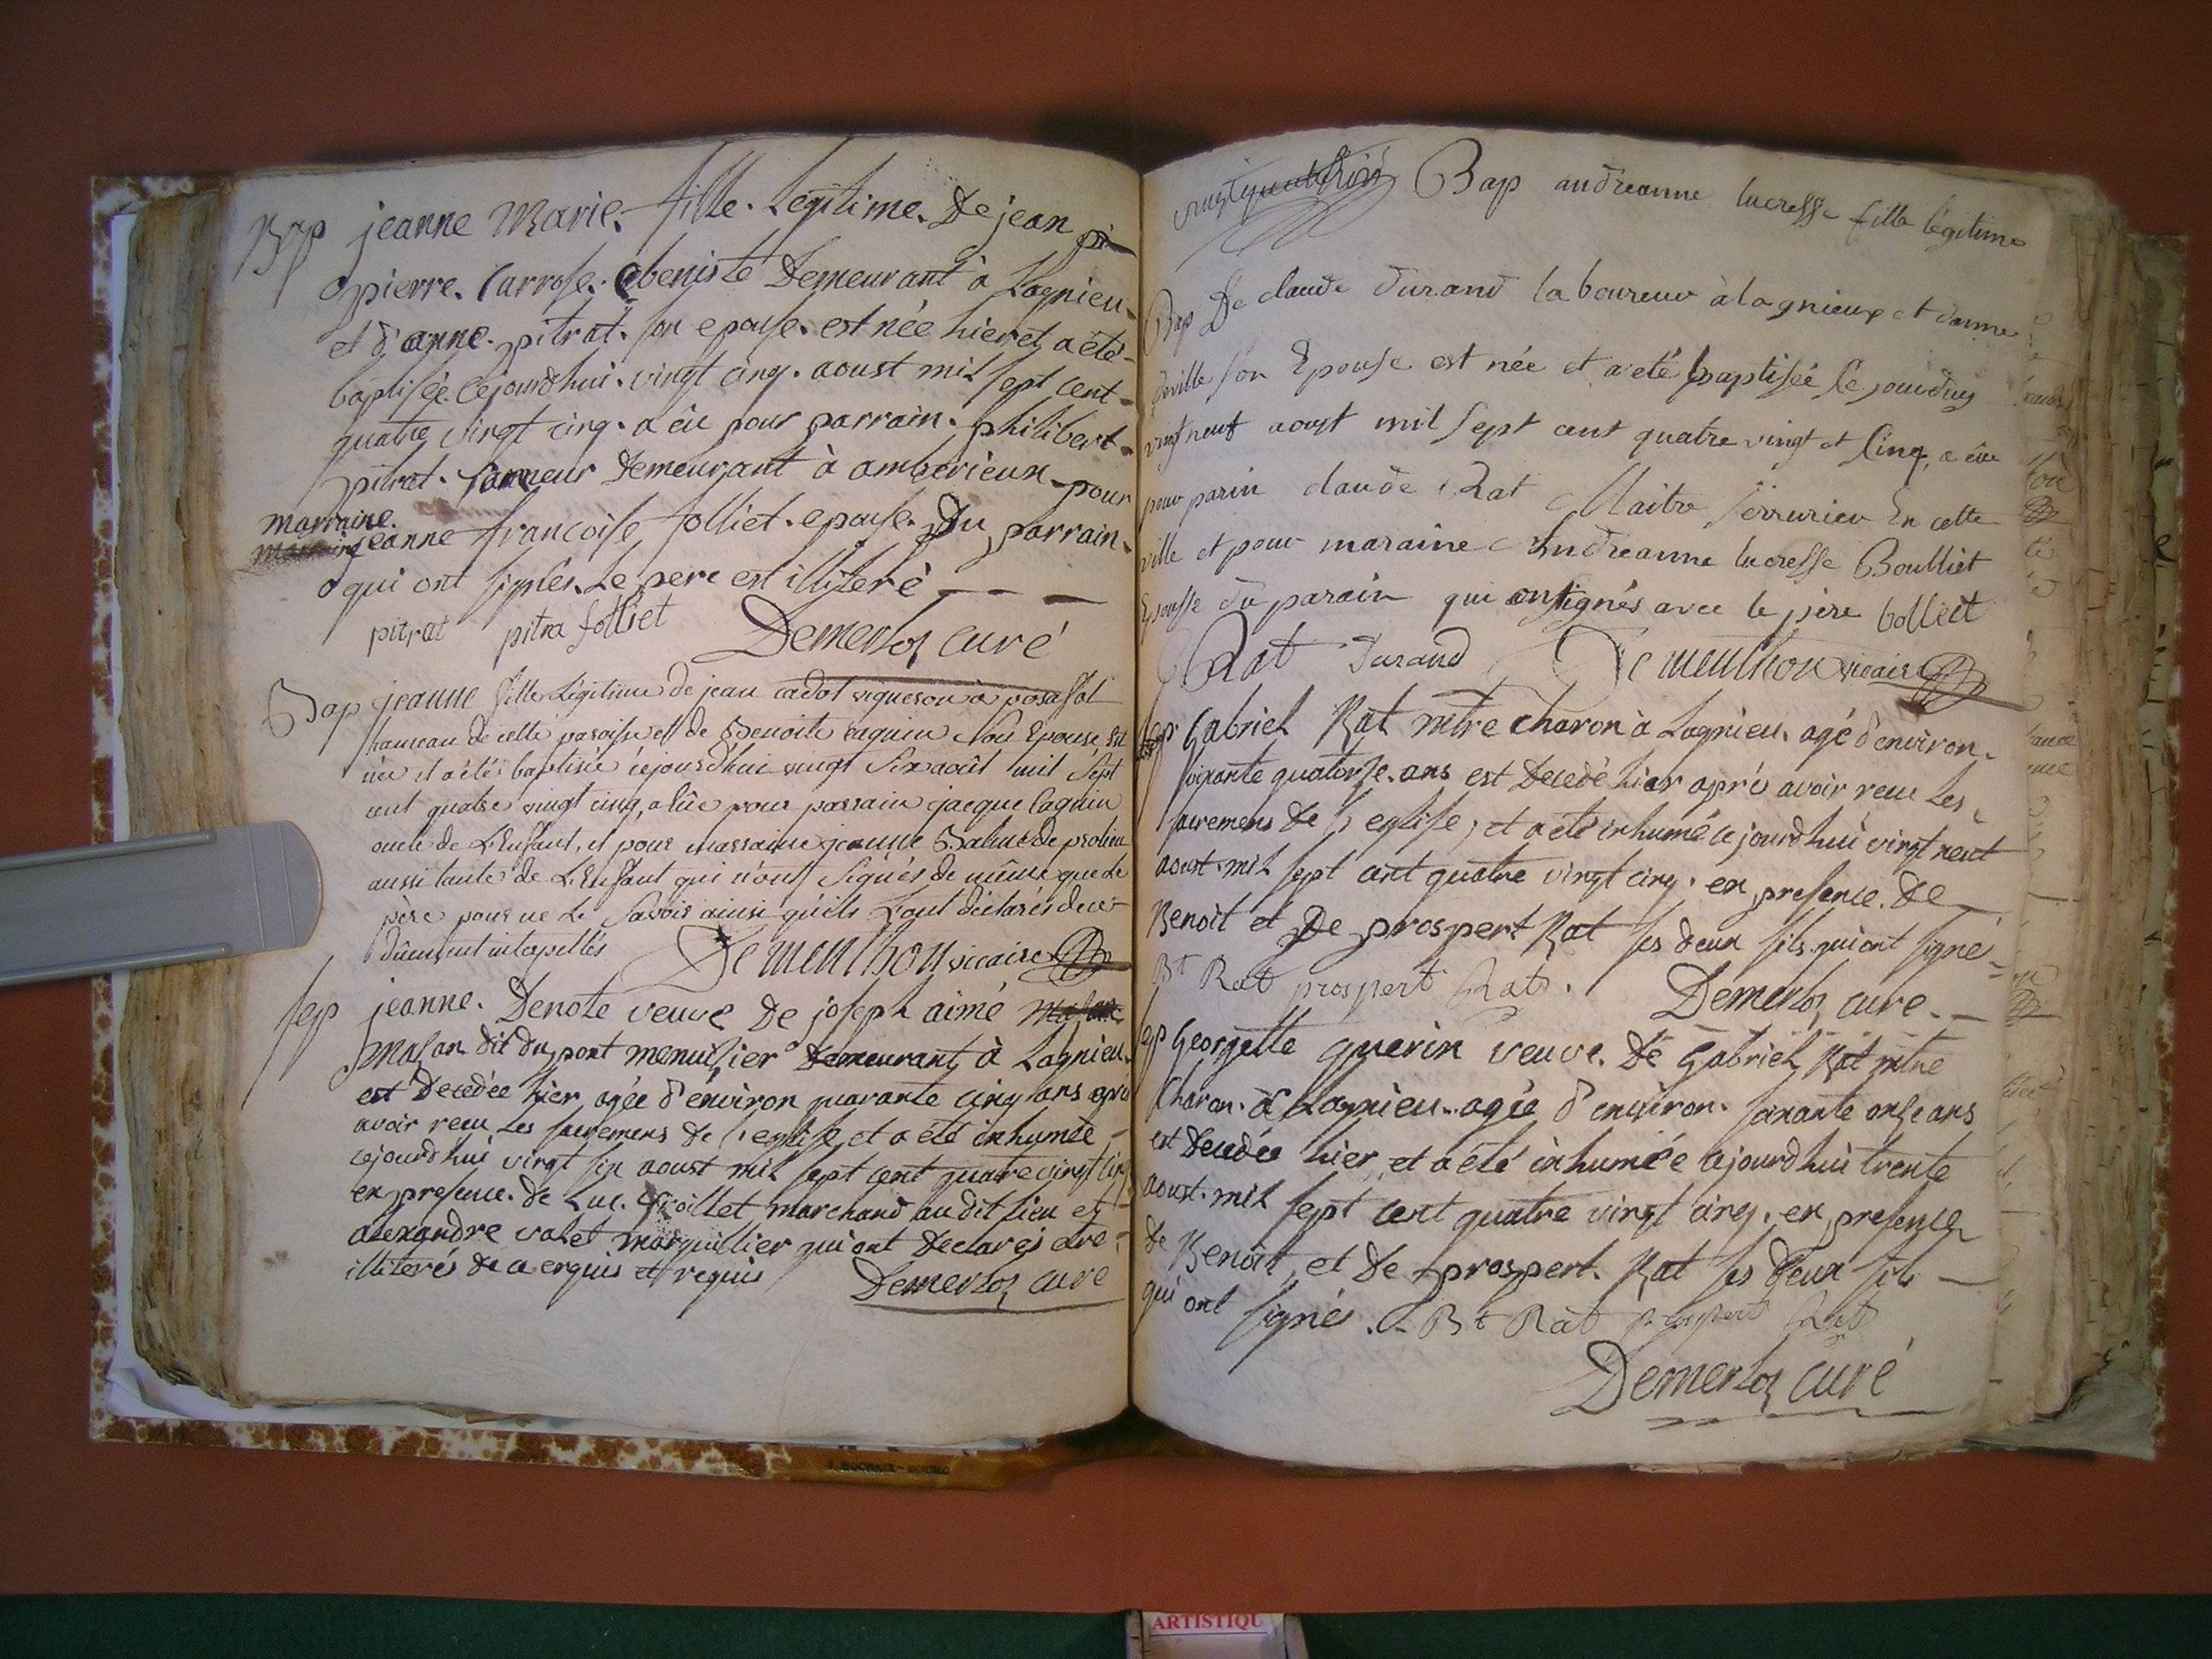 Bap jeanne Marie. fille. Legitime. De jean pi
pierre. Carrose. ebeniste Demeurant à Lagnieu
et d'anne. pitrat. son epouse. est née hier et a été
baptisée. Cejourdhui. vingt cinq. aoust mil sept cent
quatre vingt cinq. a eu pour parrain. philibert
pitrat. Demeurant à amberieux pour
marraine.
jeanne francoise folliet. epouse. Du parrain
qui ont signés. Le pere est illiteré
pitrat pitra folliet Demerloz curé
Bap jeanne fille Légitime de jean cadot vigneron à posafol
hameau de cette paroisse et de Benoite cagnin son Epouse est
née et a été baptisée cejourd'hui vingt Six août mil Sept
cent quatre vingt cinq, a Eüe pour parrain jacque Cagnin
oncle de L'Enfant, et pour marraine jeanne de proulieu
aussi tante de L'Enfant qui n'ont Signés de même que le
père pour ne Le Savoir ainsi qu'ils L'ont déclarés de ce
düement intepellés De menthon vicaire
sep jeanne. Denote veuve De joseph aimé
Mason dit du pont menuisier Demeurant à Lagnieu.
est Decedée hier agée d'environ quarante cinq ans apres
avoir recu Les sacremens de l'eglise, et a été inhumée
cejourdhui vingt six aoust mil sept cent quatre vingt cinq
en presence. de Luc. marchand au dit Lieu et
alexandre valet marguillier qui ont Declarés etre
illiterés de ce enquis et requis Demerloz curé
Bap andreanne lucresse fille légitime
Bap De claude Durand laboureur à lagnieux et danne
deville son Epouse est née et a eté baptisée Ce jourdhuy
vingt neuf aoust mil sept cent quatre vingt et Cinq, a eüe
pour parin claude Rat Maitre serrurier En cette
ville et pour maraine Andreanne lucresse Boulliet
Epousse du parain qui ont signés avec le père bolleit
Rat Durand De menthon vicaire
sep Gabriel Rat mtre charon à Lagnieu. agé d'environ
soixante quatorse. ans est Decedé hier après avoir recu Les
sacremens de l'eglise, et a été inhumé cejourdhui vingt neuf
aoust. mil sept cent quatre vingt cinq. en presence. De
Benoit et De prospert Rat ses deux fils. qui ont signé
Bt Rat prospert Rat. Demerloz curé
sep Georgette guerin veuve. De Gabriel Rat mtre
Charon. à Lagnieu. agée d'environ. soixante onse ans
est Decedée hier, et a été inhumée cejourdhui trente
aoust. mil sept cent quatre vingt cinq. en presence
de Benoit et De prospert. Rat ses deux fils
qui ont signés. Bt Rat prospert Rat
Demerloz curé
ARTISTIQU